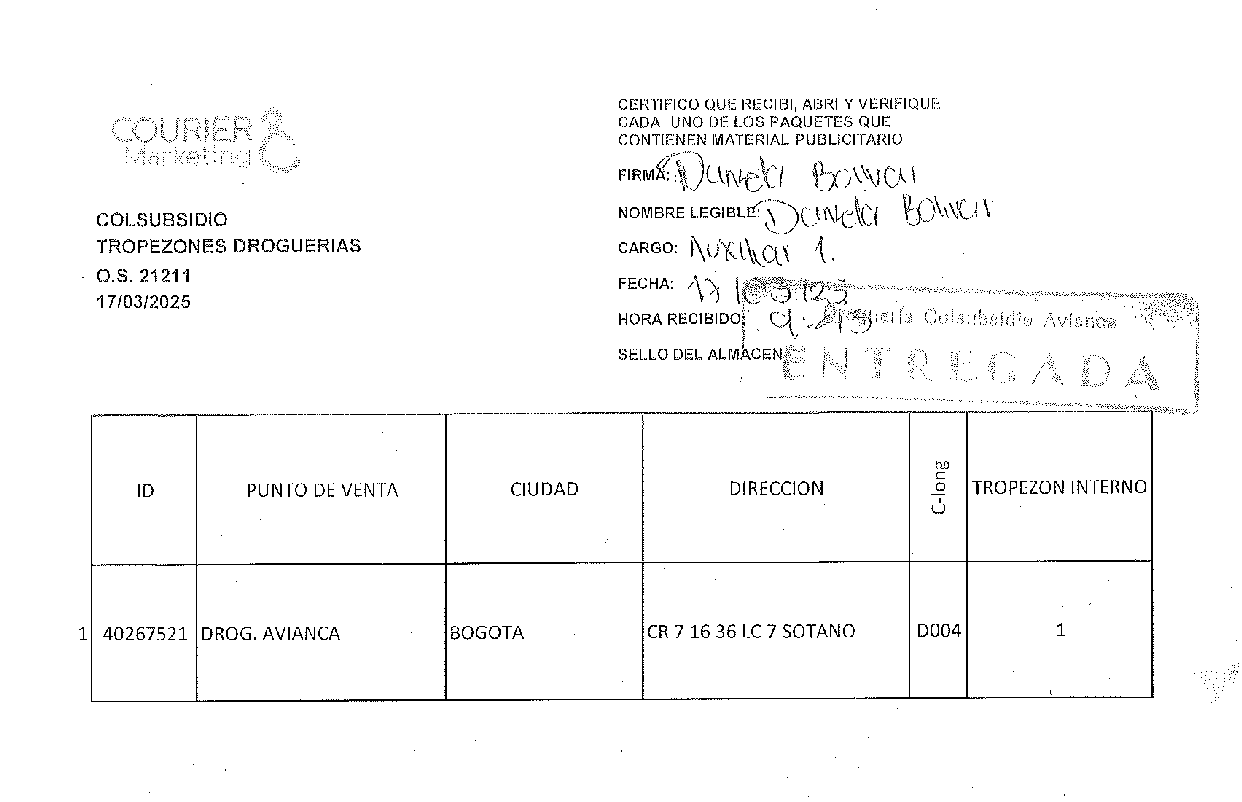 COURIER
Marketing
COLSUBSIDIO
TROPEZONES DROGUERIAS
O.S. 21211
17/03/2025
CERTIFICO QUE RECIBI, ABRI Y VERIFIQUE
CADA UNO DE LOS PAQUETES QUE
CONTIENEN MATERIAL PUBLICITARIO
FIRMA: Daniela Bolivar
NOMBRE LEGIBLE: Daniela Bolivar
CARGO: Auxiliar 1.
FECHA:
HORA RECIBIDO:
SELLO DEL ALMACEN
Colsubsidio Avianca
ENTREGADA
ID PUNTO DE VENTA CIUDAD DIRECCION C-long TROPEZON INTERNO
1 40267521 DROG. AVIANCA BOGOTA CR 7 16 36 LC 7 SOTANO D004 1